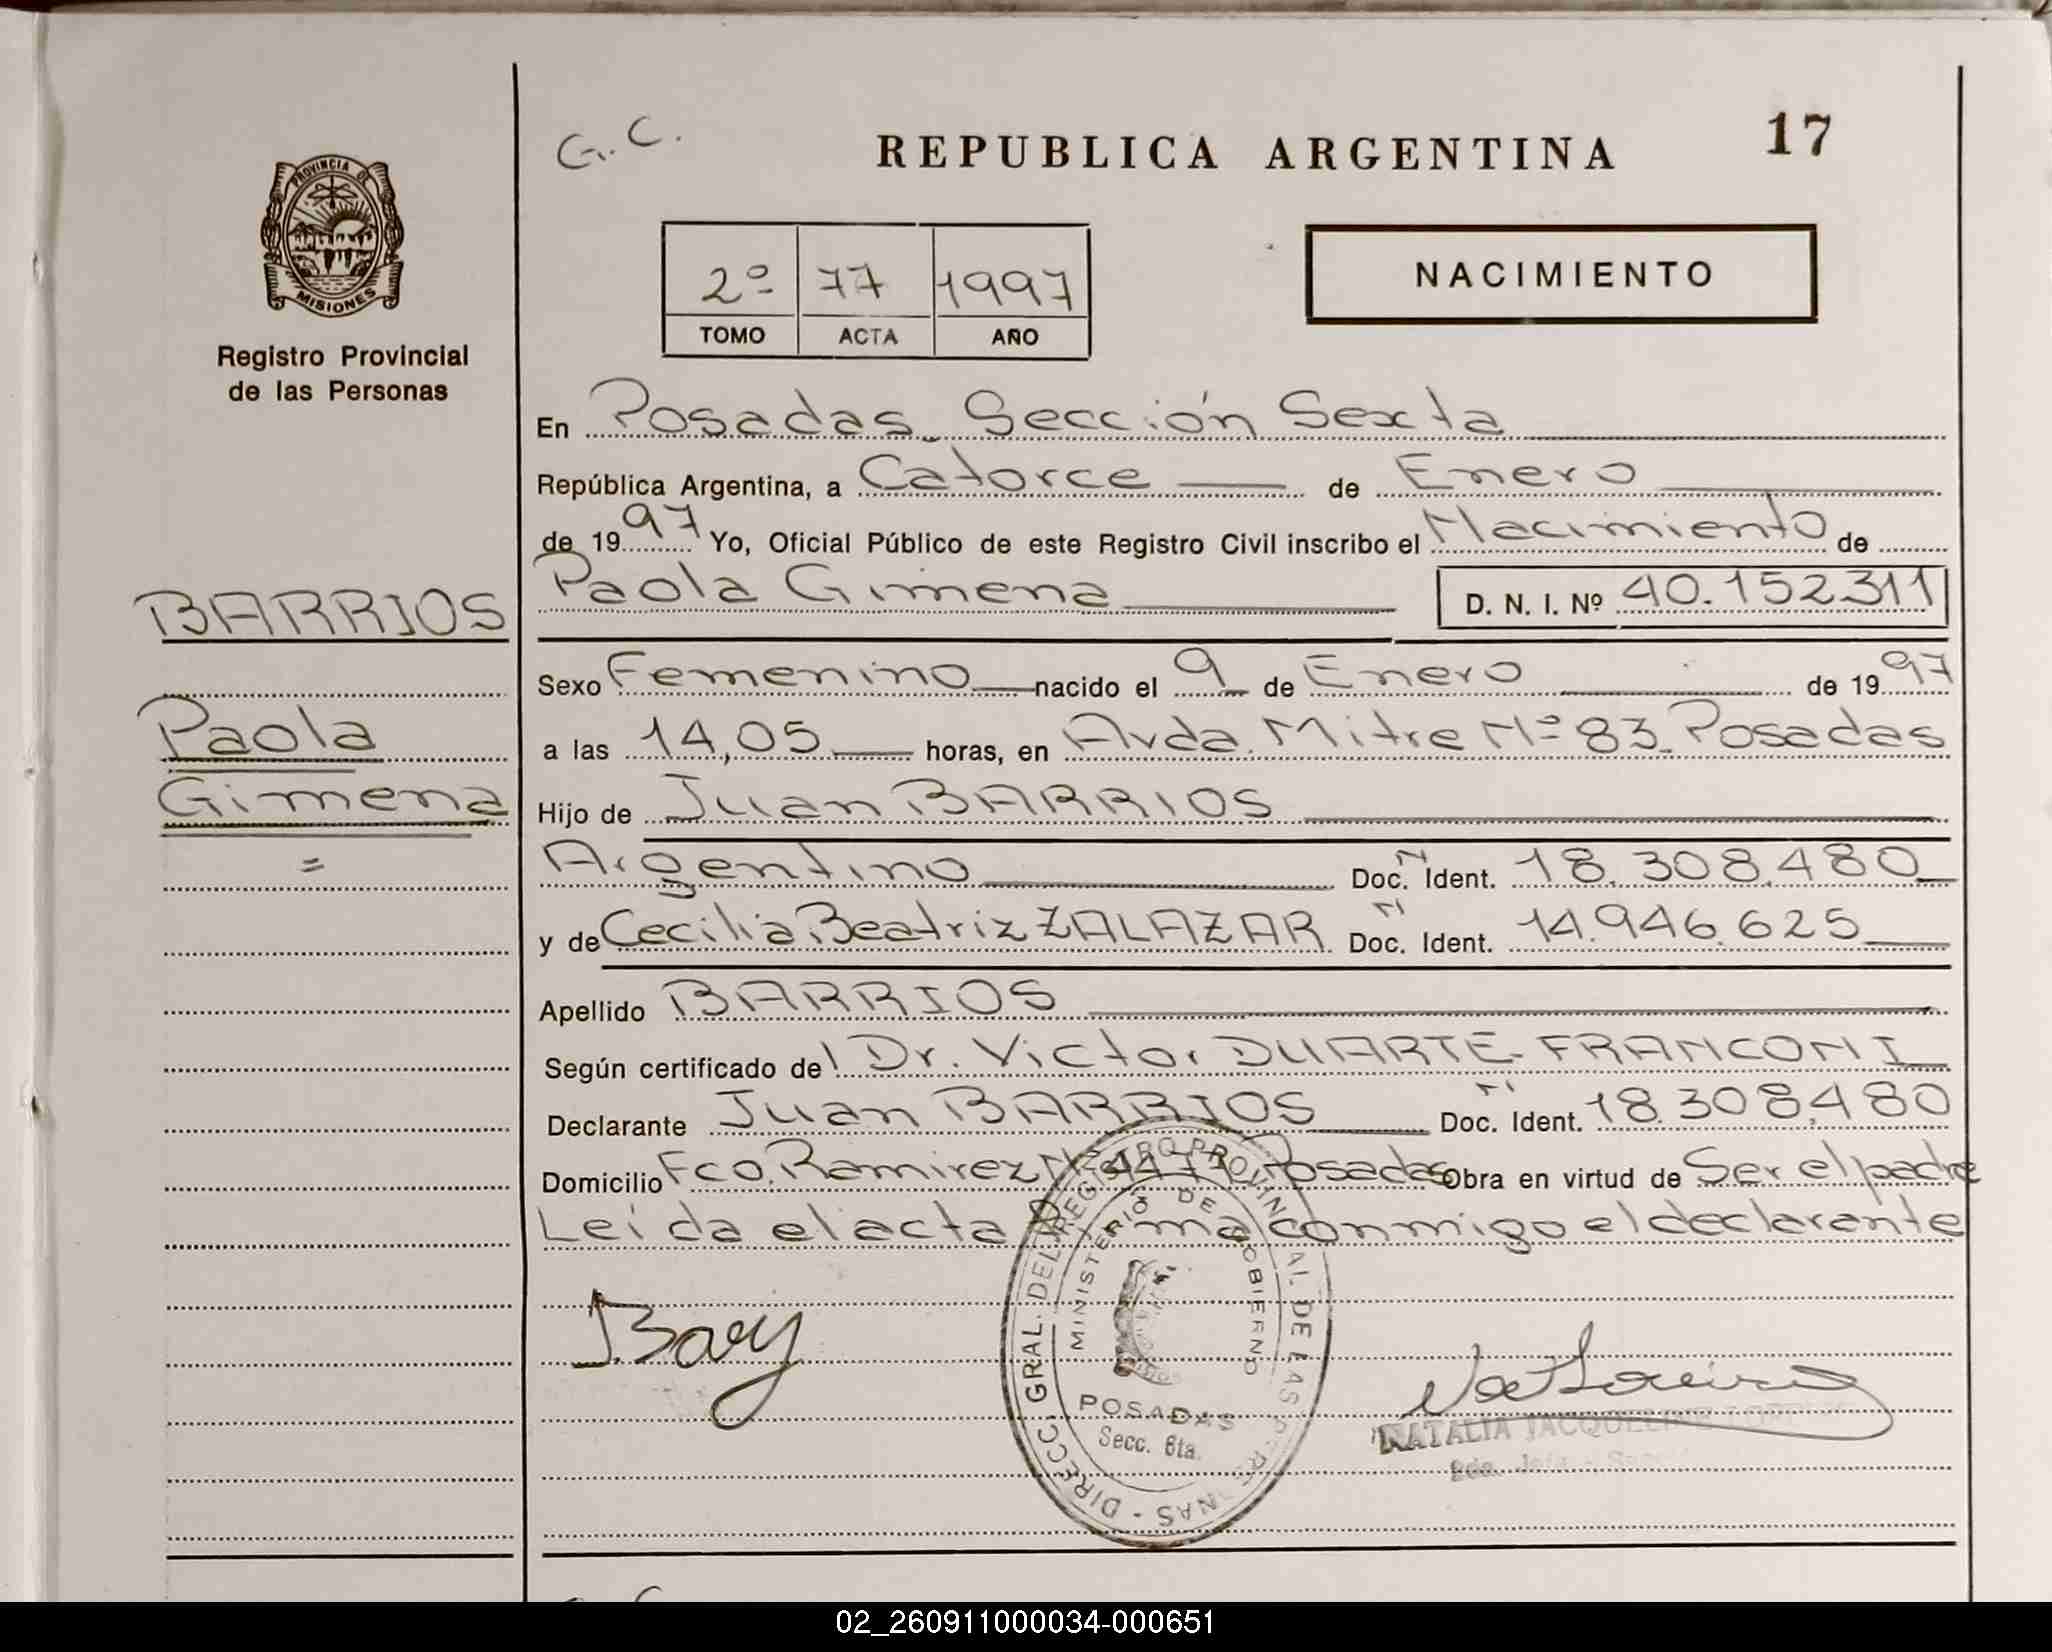 G. C.
REPUBLICA ARGENTINA
17
PROVINCIA DE
MISIONES
Registro Provincial
de las Personas
2º 77 1997
TOMO ACTA AÑO
NACIMIENTO
En Posadas Sección Sexta
República Argentina, a Catorce de Enero
de 1997 Yo, Oficial Público de este Registro Civil inscribo el Nacimiento de
Paola Gimena D. N. I. Nº 40.152311
BARRIOS
Paola
Gimena
=
Sexo Femenino nacido el 9 de Enero de 1997
a las 14,05 horas, en Avda. Mitre Nº 83. Posadas
Hijo de Juan BARRIOS
Argentino Doc. N Ident. 18.308.480
y de Cecilia Beatriz ZALAZAR Doc. N Ident. 14.946.625
Apellido BARRIOS
Según certificado del Dr. Victor DUARTE FRANCONI
Declarante Juan BARRIOS Doc. N Ident. 18.308.480
Domicilio Fco. Ramirez Posadas Obra en virtud de Ser el padre
Leída el acta Firma conmigo el declarante
J.Bary
DIRECC. GRAL. DEL REGISTRO PROVINCIAL DE LAS PERSONAS
MINISTERIO DE GOBIERNO
POSADAS
Secc. 6ta.
NATALIA JACQUELINE
02_260911000034-000651